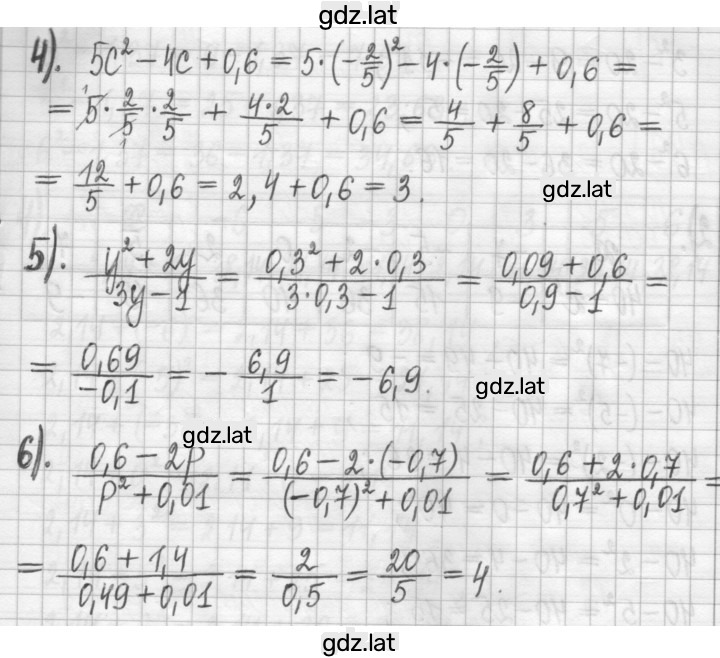 gdz.lat
4). 5c² – 4c + 0,6 = 5·(–2/5)² – 4·(–2/5) + 0,6 =
= 5·2/5·2/5 + 4·2/5 + 0,6 = 4/5 + 8/5 + 0,6 =
= 12/5 + 0,6 = 2,4 + 0,6 = 3. gdz.lat
5). (y² + 2y)/(3y – 1) = (0,3² + 2·0,3)/(3·0,3 – 1) = (0,09 + 0,6)/(0,9 – 1) =
= 0,69/–0,1 = – 6,9/1 = –6,9. gdz.lat
gdz.lat
6). (0,6 – 2p)/(p² + 0,01) = (0,6 – 2·(–0,7))/((–0,7)² + 0,01) = (0,6 + 2·0,7)/(0,7² + 0,01) =
= (0,6 + 1,4)/(0,49 + 0,01) = 2/0,5 = 20/5 = 4.
gdz.lat